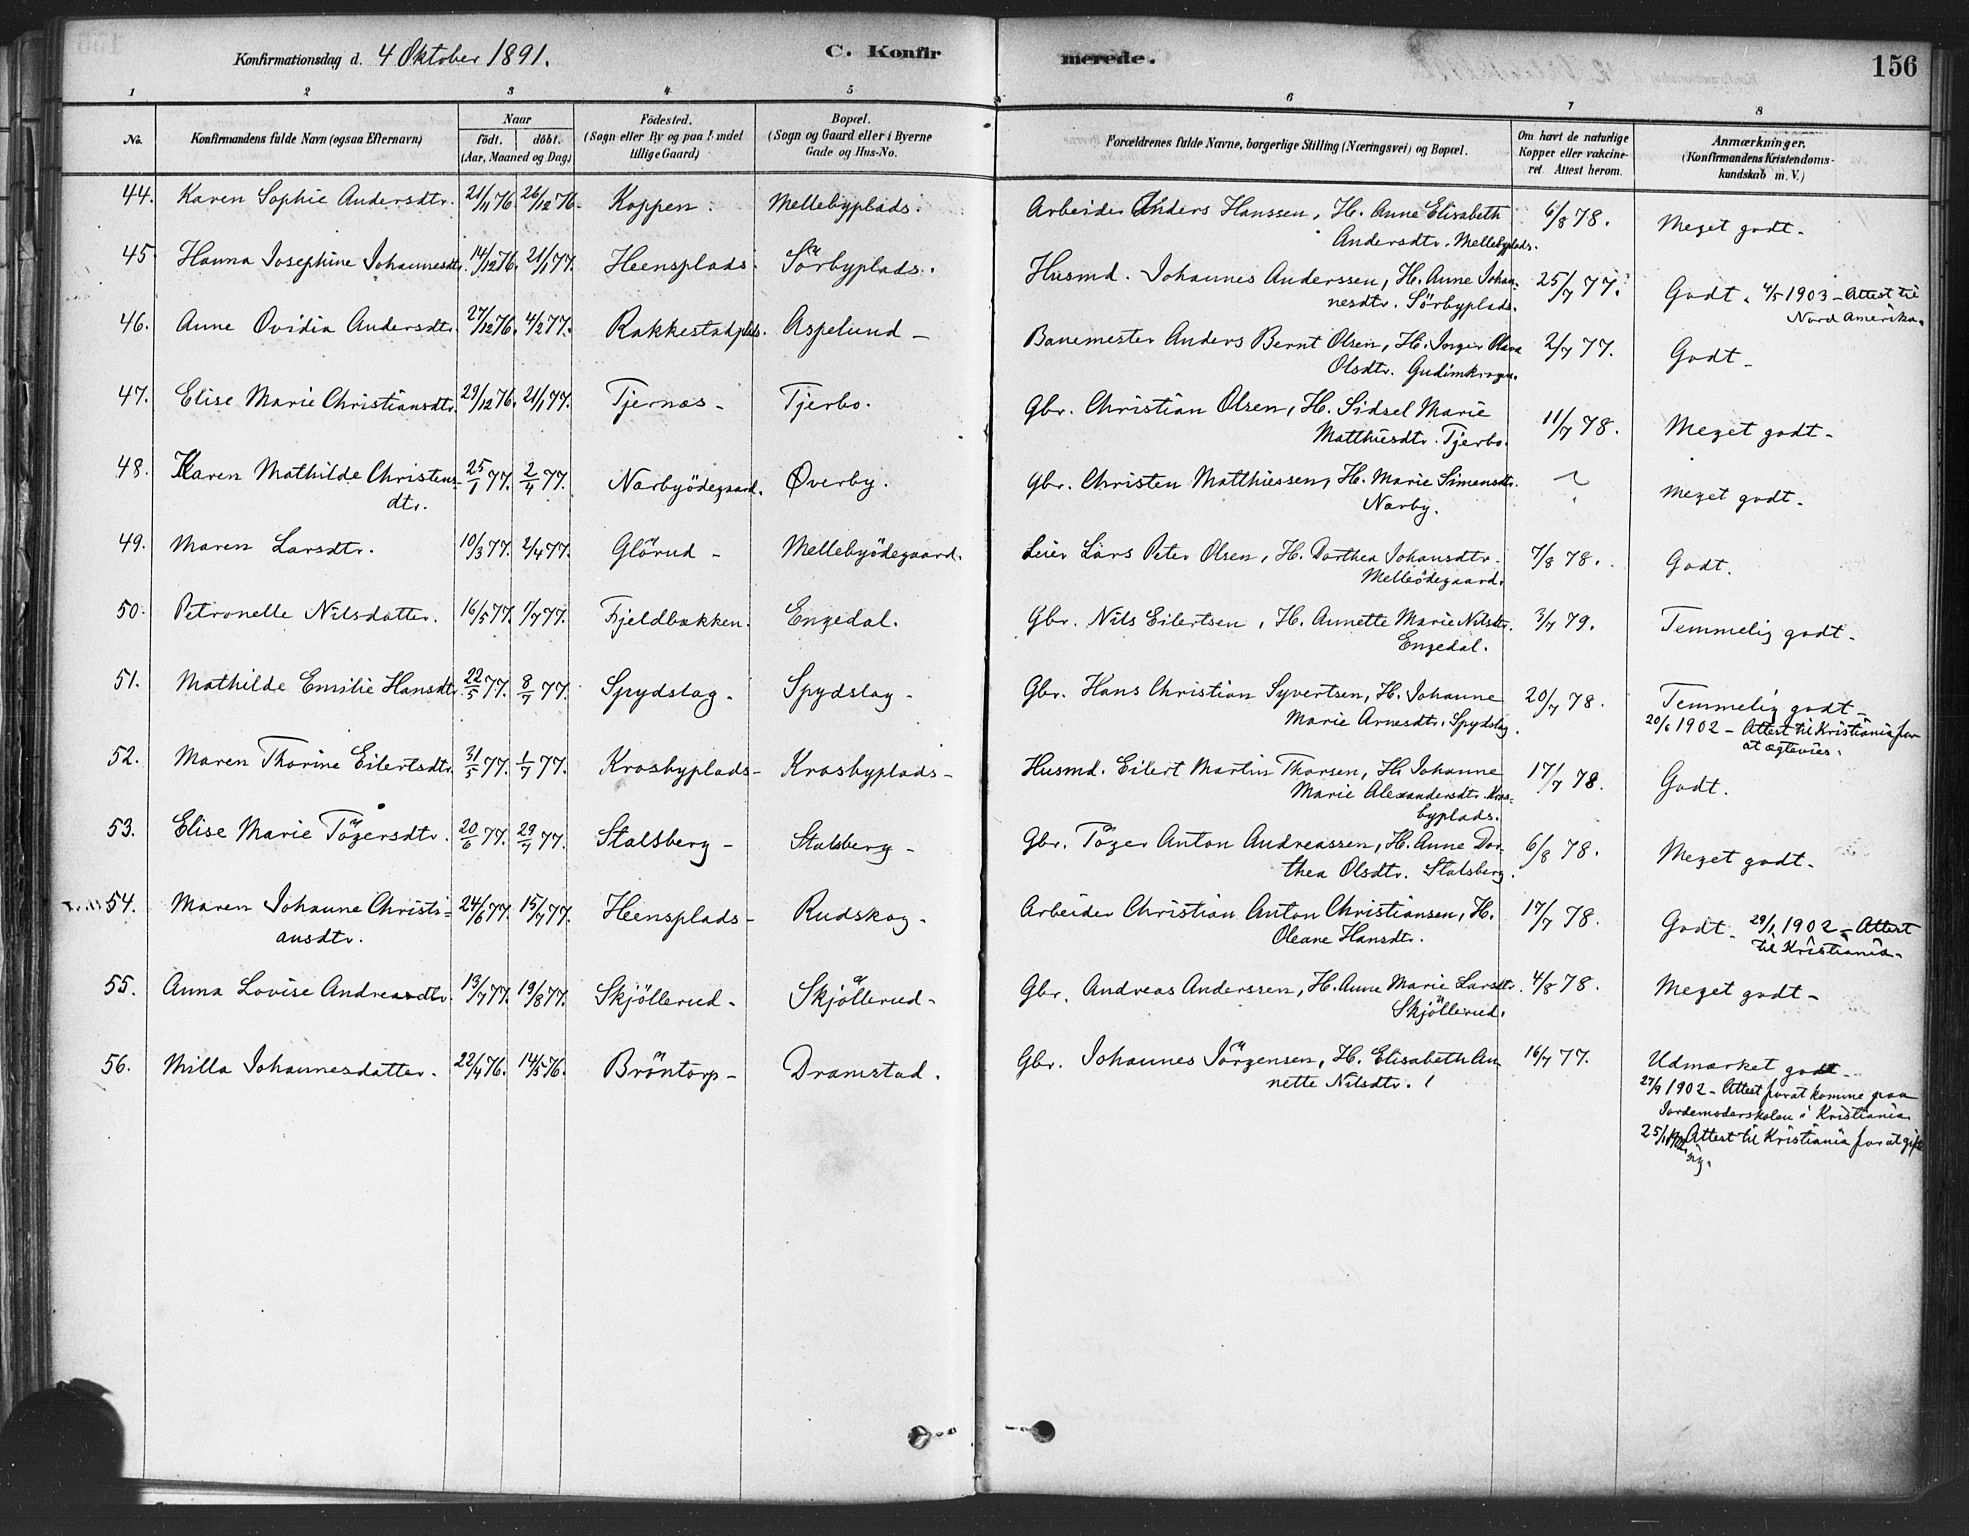 Konfirmationsdag d. 4 Oktober 1891. C. Konfirmerede. 156
1 2 3 4 5 6 7 8
No. Konfirmandens fulde Navn (ogsaa Efternavn) Naar födt. döbt. (Aar, Maaned og Dag) Födested. (Sogn eller By og paa Landet tillige Gaard) Bopæl. (Sogn og Gaard eller i Byerne Gade og Hus-No. Forældrenes fulde Navne, borgerlige Stilling (Næringsvei) og Bopæl. Om havt de naturlige Kopper eller vakcineret Attest herom. Anmærkninger. (Konfirmandens Kristendomskundskab m. V.)
44. Karen Sophie Andersdtr. 21/11 76. 26/12 76. Koppen. Mellebyplads. Arbeider Anders Hanssen, H. Anne Elisabeth 6/8 78. Meget godt.
Andersdtr. Mellebyplads.
45. Hanna Josephine Johannesdtr. 14/12 76. 21/1 77. Heensplads. Sörbyplads. Husmd. Johannes Anderssen, H. Anne Johan- 25/7 77. Godt. 4/5 1903 - Attest til
nesdtr. Sörbyplads. Nord Amerika.
46. Anne Ovidia Andersdtr. 27/12 76. 4/2 77. Rakkestadplds. Aspelund - Banemester Anders Bernt Olsen, H. Inger Olava 2/7 77. Godt -
Olsdtr. Gudimkrogen.
47. Elise Marie Christiansdtr. 29/12 76. 21/1 77. Tjernæs - Tjerbo. Gbr. Christian Olsen, H. Sidsel Marie 11/7 78. Meget godt -
Matthisdtr. Tjerbo.
48. Karen Mathilde Christens- 25/1 77. 2/4 77. Nærbyödegaard. Øverby. Gbr. Christen Matthiessen, H. Marie Simensdtr. ? Meget godt -
dtr. Nærby.
49. Maren Larsdtr. 10/3 77. 2/4 77. Glörud - Mellebyödegaard. Leier Lars Peter Olsen, H. Dorthea Johansdtr. 7/8 78. Godt.
Melleödegaard.
50. Petronelle Nilsdatter. 16/5 77. 1/7 77. Fjeldbakken. Engedal. Gbr. Nils Eilertsen, H. Annette Marie Nilsdtr. 3/7 79. Temmelig godt -
Engedal.
51. Mathilde Emilie Hansdtr. 22/5 77. 8/7 77. Spydslag - Spydslag - Gbr. Hans Christian Syvertsen, H. Johanne 20/7 78. Temmelig godt -
Marie Arnesdtr. Spydslag. 20/6 1902 - Attest til Kristiania for
at ægtevies.
52. Maren Thorine Eilertsdtr. 31/5 77. 1/7 77. Krosbyplads - Krosbyplads - Husmd. Eilert Martin Thorsen, H. Johanne 17/7 78. Godt.
Marie Alexandersdtr. Kros-
byplads.
53. Elise Marie Tögersdtr. 20/6 77. 29/7 77. Stalsberg - Stalsberg - Gbr. Töger Anton Andreassen, H. Anne Dor- 6/8 78. Meget godt -
thea Olsdtr. Stalsberg.
54. Maren Johanne Christi- 24/6 77. 15/7 77. Heensplads - Rudskog - Arbeider Christian Anton Christiansen, H. 17/7 78. Godt. 29/1 1902 - Attest
ansdtr. Oleane Hansdtr. til Kristiania.
55. Anna Lovise Andreasdtr. 13/7 77. 19/8 77. Skjöllerud - Skjöllerud - Gbr. Andreas Anderssen, H. Anne Marie Larsdtr. 4/8 78. Meget godt -
Skjöllerud.
56. Milla Johannesdatter. 22/4 76. 14/5 76. Bröntorp - Dramstad. Gbr. Johannes Jörgensen, H. Elisabeth An- 16/7 77. Udmærket godt -
nette Nilsdtr. 27/9 1902 - Attest for at komme paa
Jordemoderskolen i Kristiania
25/1 Attest til Kristiania for at gifte
sig.